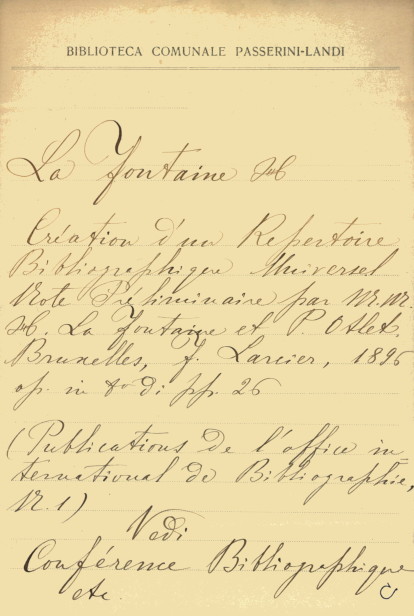 BIBLIOTECA COMUNALE PASSERINI-LANDI
La Fontaine H
Création d'un Repertoire
Bibliographique Universel
Note Préliminaire par M.M.
H. La Fontaine et P. Otlet.
Bruxelles, F. Larcier, 1896
op. in 8º di pp. 26
(Publications de l'office in
ternational de Bibliographie,
N. 1)
Vedi
Conférence Bibliographique
etc